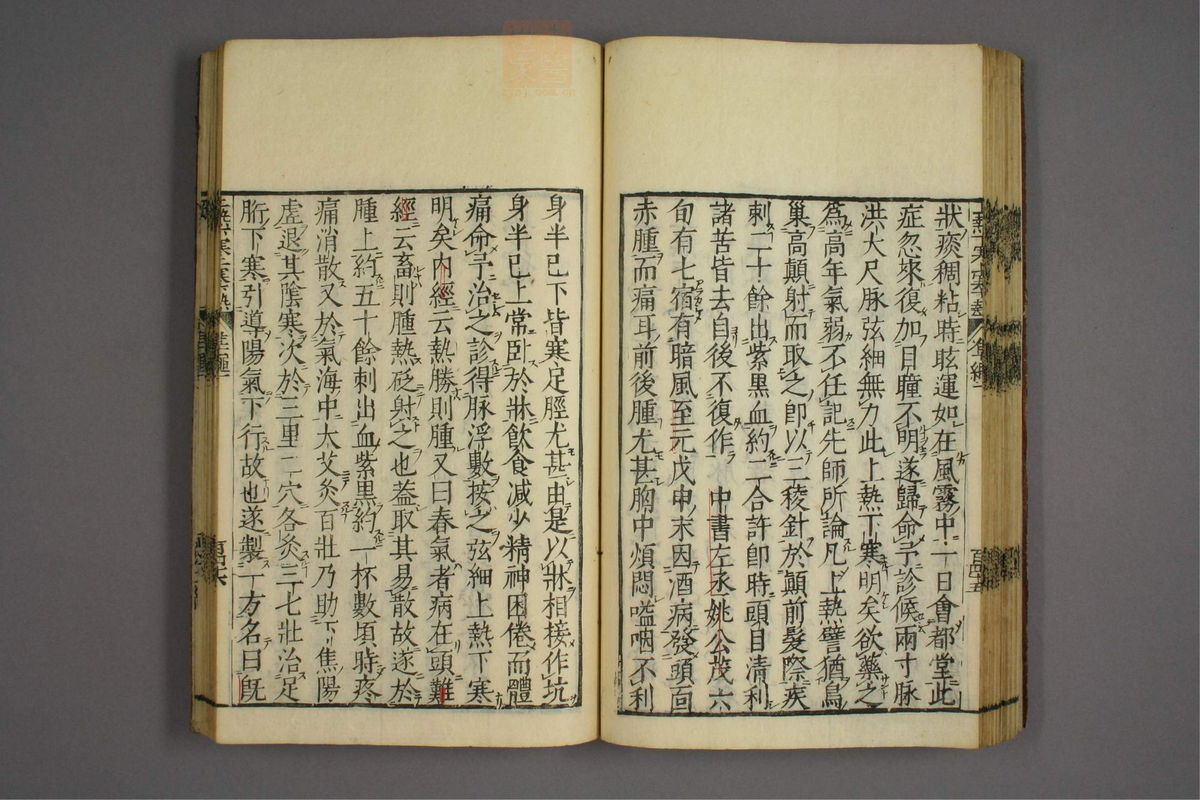 狀痰稠粘時眩運如在風霧中一日會都堂此
症忽來復加目瞳不明遂歸命予診候兩寸脉
洪大尺脉弦細無力此上熱下寒明矣欲藥之
爲高年氣弱不任記先師所論凡上熱譬猶鳥
巢高顛射而取之即以三稜針於顛前髮際疾
刺二十餘出紫黑血約二合許即時頭目清利
諸苦皆去自後不復作 中書左丞姚公茂六
旬有七宿有暗風至元戊申末因酒病發頭面
赤腫而痛耳前後腫尤甚胸中煩悶嗌咽不利
身半已下皆寒足脛尤甚由是以牀相接作坑
身半已上常卧於牀飲食减少精神困倦而體
痛命予治之診得脉浮數按之弦細上熱下寒
明矣内經云熱勝則腫又曰春氣者病在頭難
經云畜則腫熱砭射之也葢取其易散故遂於
腫上約五十餘刺出血紫黑約一杯數頃時疼
痛消散又於氣海中大艾灸百壯乃助下焦陽
虛退其陰寒次於三里二穴各灸三七壯治足
胻下寒引導陽氣下行故也遂製一方名曰旣